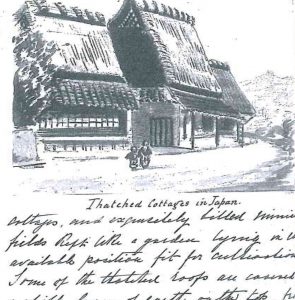 Thatched Cottages in Japan.
cottages, and exquisitely tilled
fields kept like a garden lying in
available position fit for cultivation
Some of the thatched roofs are
of earth on the top